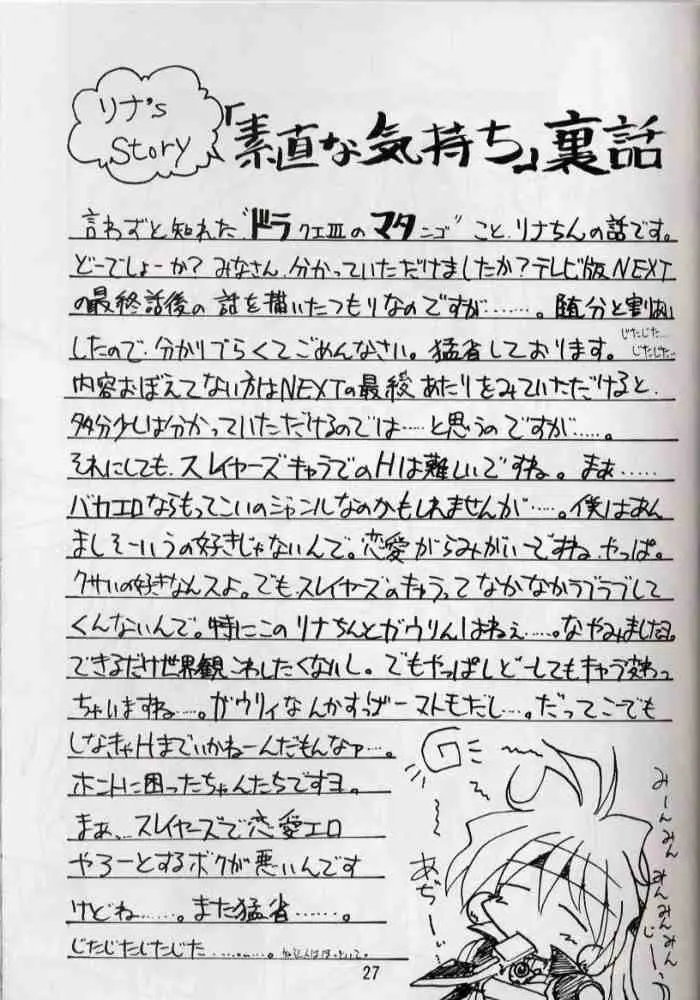 リナ's
Story
「素直な気持ち」裏話
言わずと知れた“ドラクエⅢのマタンゴ”こと、リナちんの話です。
どーでしょーか？みなさん、分かっていただけましたか？テレビ版NEXT
の最終話後の話を描いたつもりなのですが……。随分と割あい
したので、分かりづらくてごめんなさい。猛省しております。
じたじた…
じたじた…
内容おぼえてない方はNEXTの最終あたりをみていただけると、
多分少しは分かっていただけるのでは……と思うのですが……。
それにしても、スレイヤーズキャラでのHは難しいですね。まぁ……
バカエロならもってこいのジャンルなのかもしれませんが……。僕はあん
ましそーいうの好きじゃないんで。恋愛がらみがいーですね、やっぱ。
クサいの好きなんスよ。でも、スレイヤーズのキャラってなかなかラブラブして
くんないんで。特にこのリナちんとガウリんはねぇ……。なやみました。
できるだけ世界観こわしたくないし。でもやっぱしどーしてもキャラ変わっ
ちゃいますね……。ガウリィなんかすっげーマトモだし…。だってこーでも
しなきゃHまでいかねーんだもんなァ…。
ホントに困ったちゃんたちですヨ。
まぁ、スレイヤーズで恋愛エロ
やろーとするボクが悪いんです
けどね……。また猛省……。
じたじたじたじた………。
あぢーーっ
みーんみん
みんみんみん
じーーっ
27